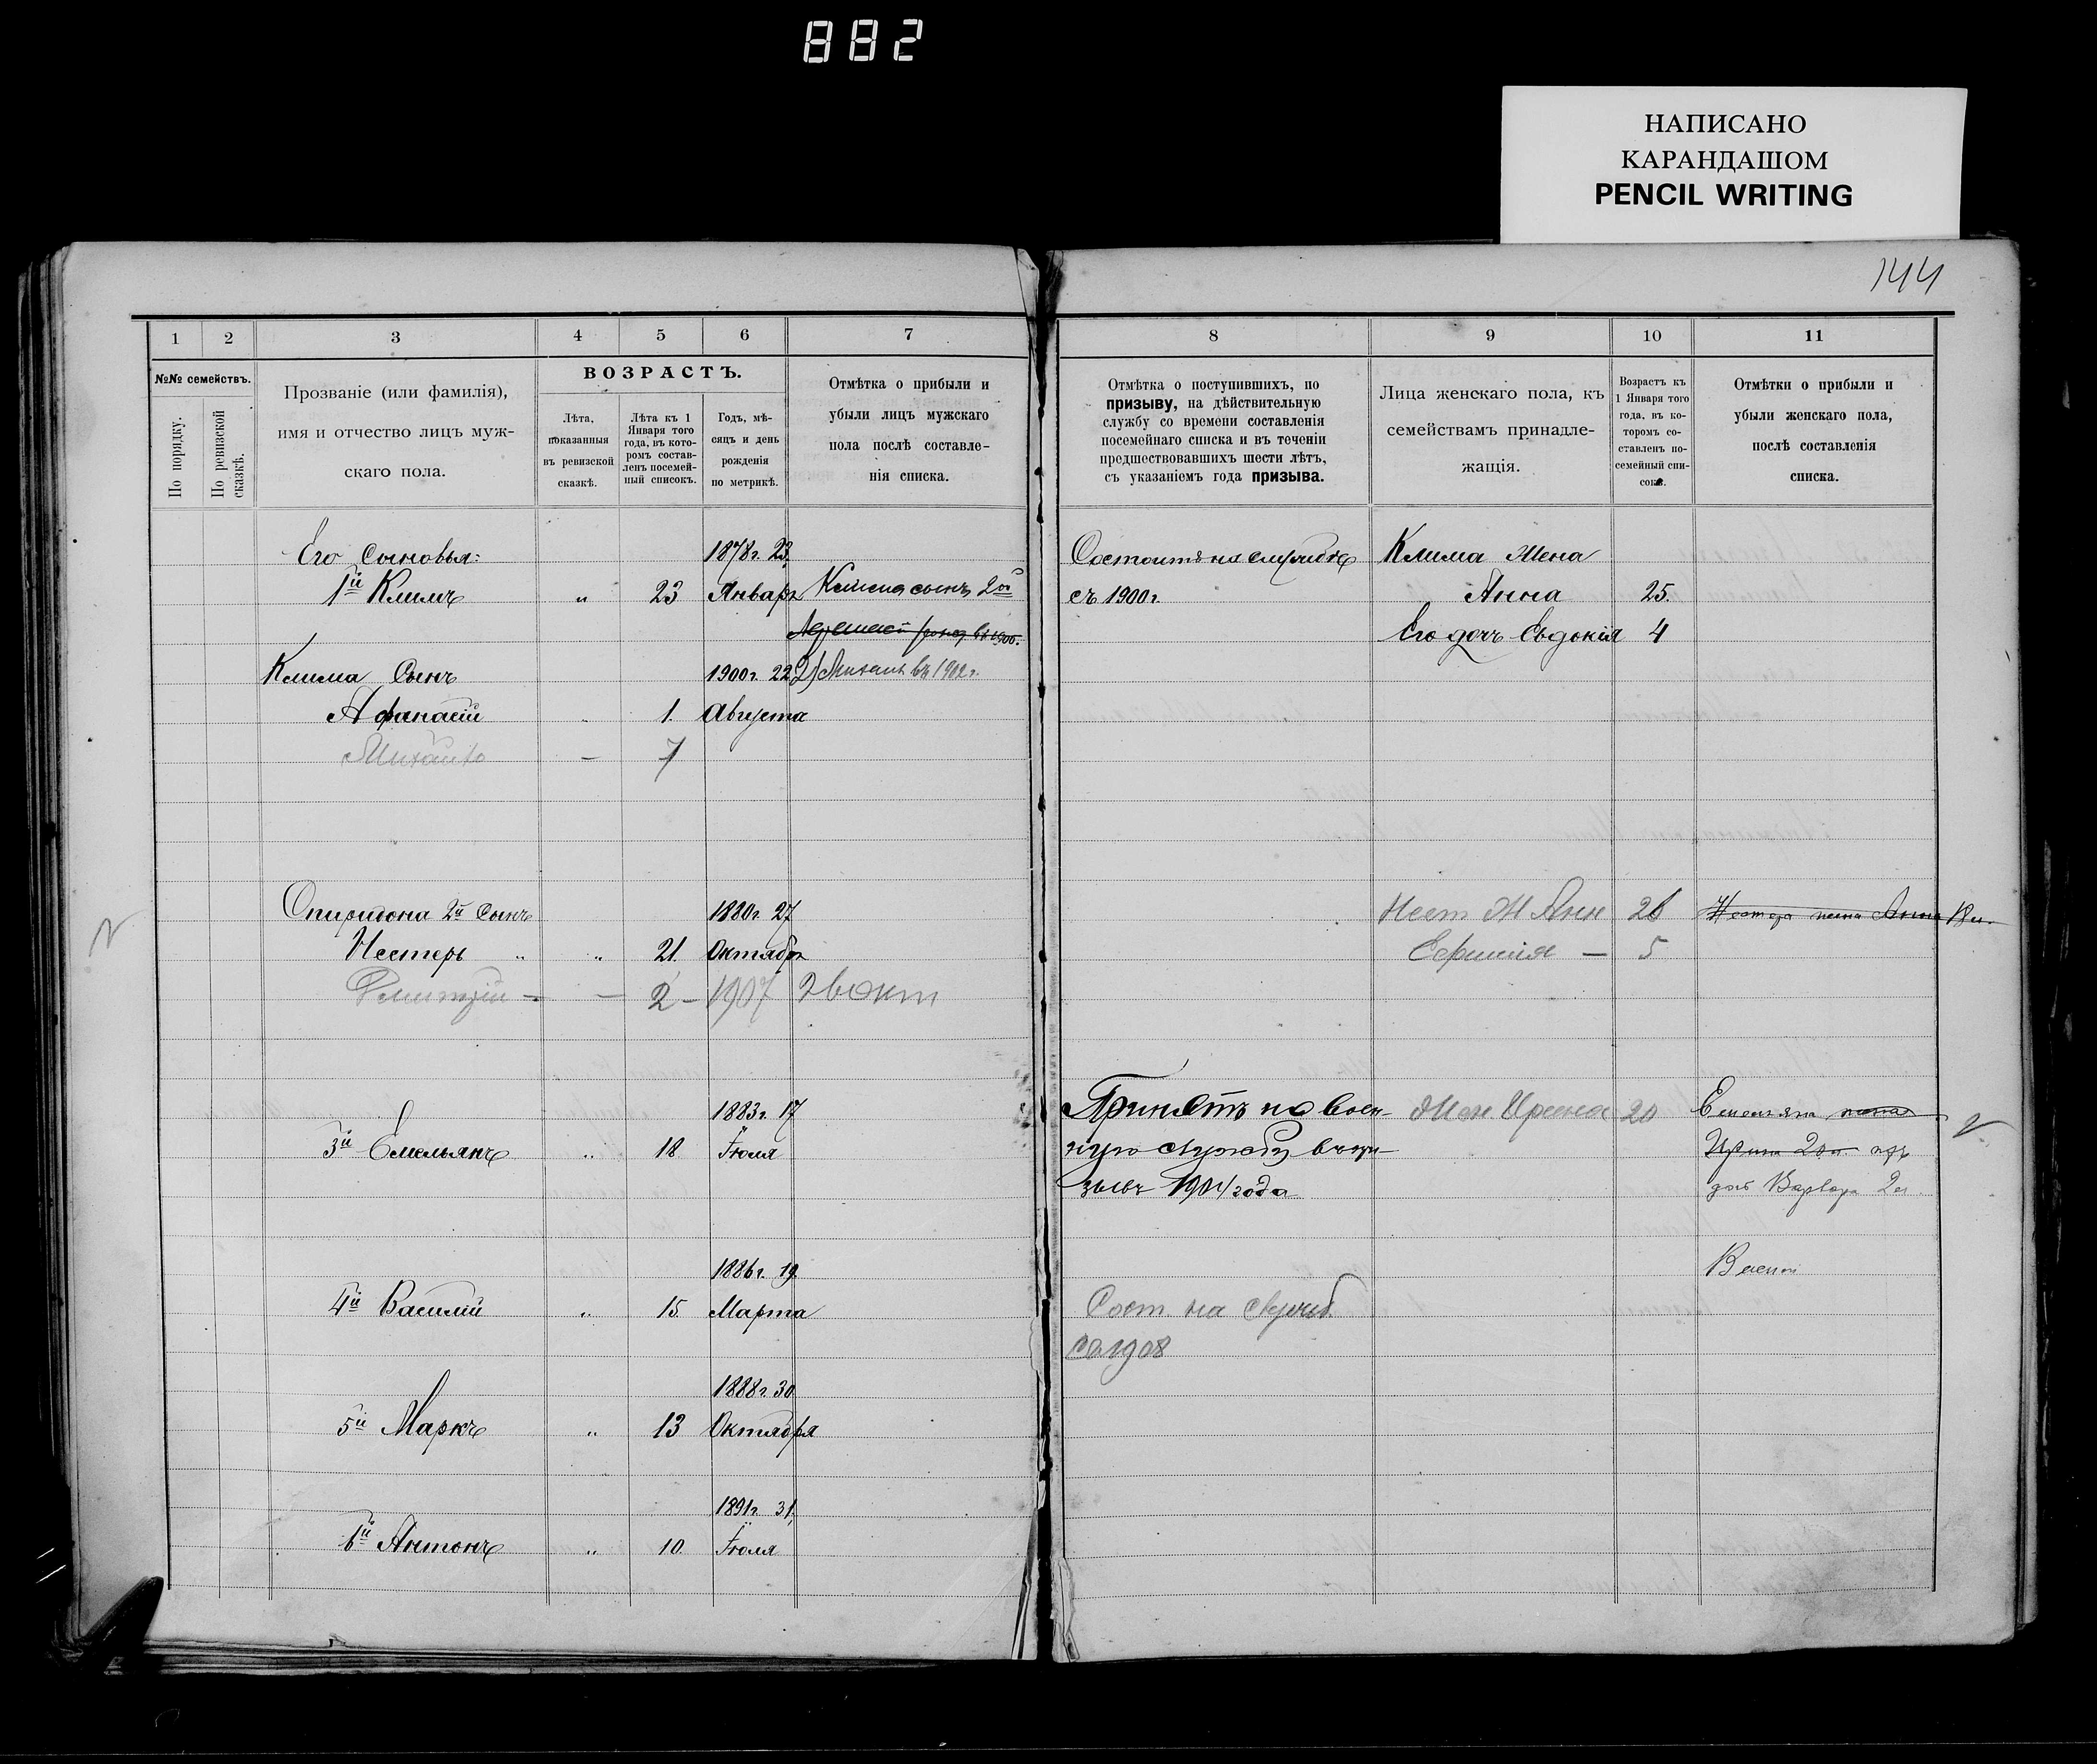 882
НАПИСАНО
КАРАНДАШОМ
PENCIL WRITING
144
1 2 3 4 5 6 7
8 9 10 11
№№ семействъ.
По порядку.
По ревизской сказкѣ.
Прозваніе (или фамилія),
имя и отчество лицъ муж-
скаго пола.
ВОЗРАСТЪ.
Лѣта,
показанныя
въ ревизской
сказкѣ.
Лѣта къ 1
Января того
года, въ кото-
ромъ состав-
ленъ посемей-
ный списокъ.
Годъ, мѣ-
сяцъ и день
рожденія
по метрикѣ.
Отмѣтка о прибыли и
убыли лицъ мужскаго
пола послѣ составле-
нія списка.
Отмѣтка о поступившихъ, по
призыву, на дѣйствительную
службу со времени составленія
посемейнаго списка и въ теченіи
предшествовавшихъ шести лѣтъ,
съ указаніемъ года призыва.
Лица женскаго пола, къ
семействамъ принадле-
жащія.
Возрастъ къ
1 Января того
года, въ ко-
торомъ со-
ставленъ по-
семейный спи-
сокъ.
Отмѣтки о прибыли и
убыли женскаго пола,
послѣ составленія
списка.
Его Сыновья: 1878г. 23 Состоитъ на службѣ Клима Жена
1й Климъ " 23 Января Клима сынъ 2й съ 1900г. Анна 25.
въ 1900. Его дочь Евдокія 4
Клима Сынъ 1900г. 22 2) Михаилъ въ 1902г.
Афанасій " 1. Августа
Михаилъ — 7
Спиридона 2й Сынъ 1880г. 27 Нест Ж Анн 26 Нестера жена Анна 18 л.
Нестеръ " " 21. Октября Ефимія — 5
Дмитрій — — 2 — 1907 26 окт
1883г. 17 Принятъ на воен- Жен Ирина 20 Емельяна жена
3й Емельянъ " 18 Іюля ную службу въ при- Ирина 20л
зывъ 1904 года дочь Варвара 2 л.
1886г. 19
4й Василій " 15. Марта Сост. на служб.
со 1908
1888г. 30
5й Маркъ " 13 Октября
1891г. 31
6й Антонъ " 10 Іюля